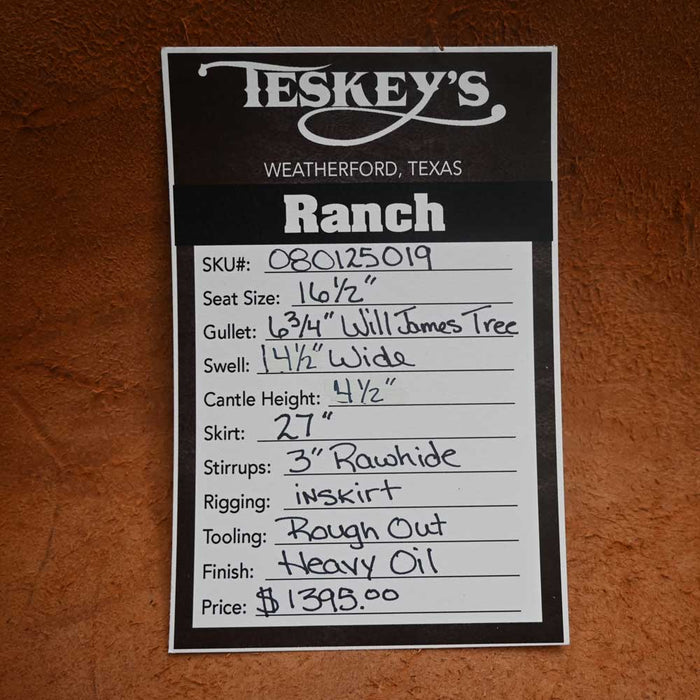 TESKEY'S
WEATHERFORD, TEXAS
Ranch
SKU#: 080125019
Seat Size: 16½"
Gullet: 6¾" Will James Tree
Swell: 14½" Wide
Cantle Height: 4½"
Skirt: 27"
Stirrups: 3" Rawhide
Rigging: inskirt
Tooling: Rough Out
Finish: Heavy Oil
Price: $1395.00